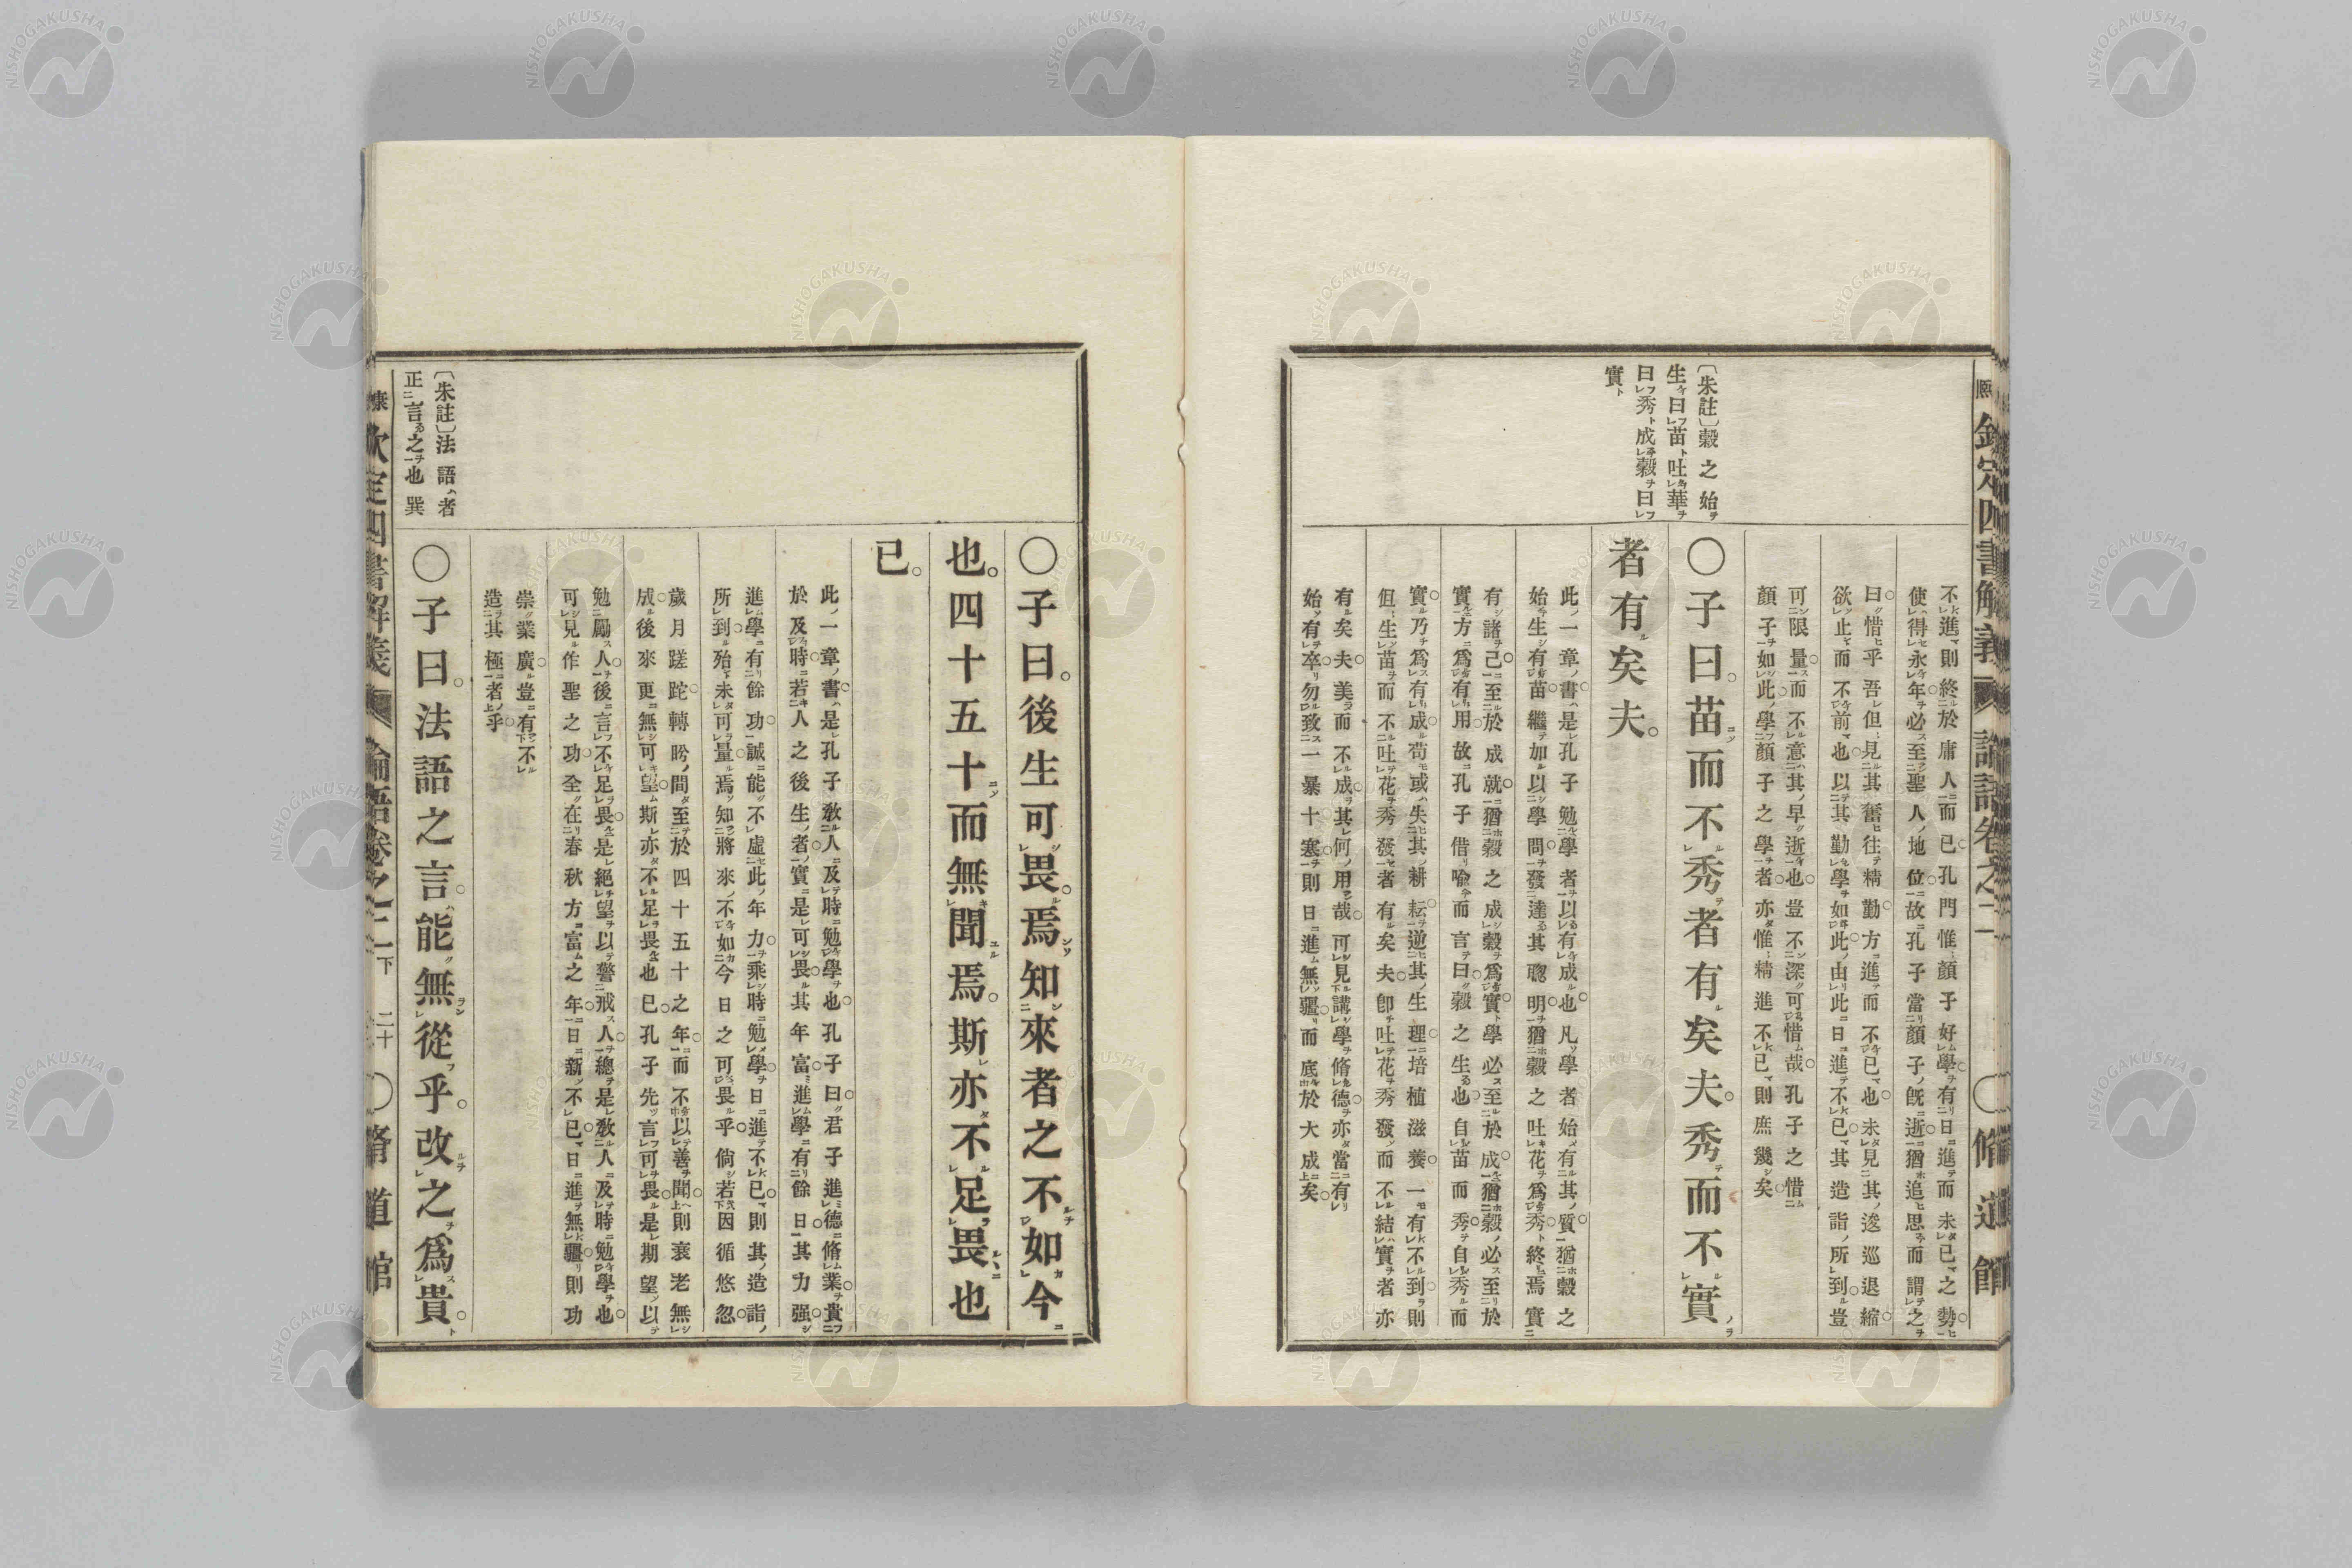 康熙 欽定四書解義 論語卷之二 脩道館
〔朱註〕穀之始
生曰苗吐華
曰秀成穀曰
實
不進則終於庸人而已孔門惟顏子好學有日進而未已之勢
使得永年必至聖人地位故孔子當顏子既逝猶追思而謂之
曰惜乎吾但見其奮往精勤方進而不已也未見其逡巡退縮
欲止而不前也以其勤學如此由此日進不已其造詣所到豈
可限量而不意其早逝也豈不深可惜哉孔子之惜
顏子如此學顏子之學者亦惟精進不已則庶幾矣
〇子曰。苗而不秀者有矣夫。秀而不實
者有矣夫。
此一章書是孔子勉學者以有成也凡學者始有其質猶穀之
始生有苗繼加以學問發達其聰明猶穀之吐花爲秀終焉實
有諸己至於成就猶穀之成穀爲實學必至於成猶穀必至於
實方爲有用故孔子借喩而言曰穀之生也自苗而秀自秀而
實乃爲有成苟或失其耕耘逆其生理培植滋養一有不到則
但生苗而不吐花秀發者有矣夫卽吐花秀發而不結實者亦
有矣夫美而不成其何用哉可見講學脩德亦當有
始有卒勿致一暴十寒則日進無疆而底於大成矣
〇子曰。後生可畏。焉知來者之不如今
也。四十五十而無聞焉。斯亦不足畏也
已。
此一章書是孔子敎人及時勉學也孔子曰君子進德脩業貴
於及時若人之後生者實是可畏其年富進學有餘日其力强
進學有餘功誠能不虛此年力乘時勉學日進不已則其造詣
所到殆未可量焉知將來不如今日之可畏乎倘若因循悠忽
歲月蹉跎轉盻間至於四十五十之年而不以善聞則衰老無
成後來更無可望斯亦不足畏也已孔子先言可畏是期望以
勉勵人後言不足畏是絕望以警戒人總是敎人及時勉學也
可見作聖之功全在春秋方富之年日新不已日進無疆則功
崇業廣豈有不
造其極者乎
〔朱註〕法語者
正言之也巽
〇子曰。法語之言。能無從乎。改之爲貴。
康熙 欽定四書解義 論語卷之二下 二十 〇脩道館
NISHOGAKUSHA